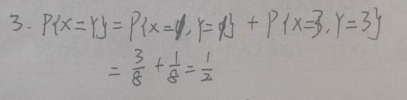 3. P{X=Y}=P{X=1,Y=1}+P{X=3,Y=3}
=3/8+1/8=1/2